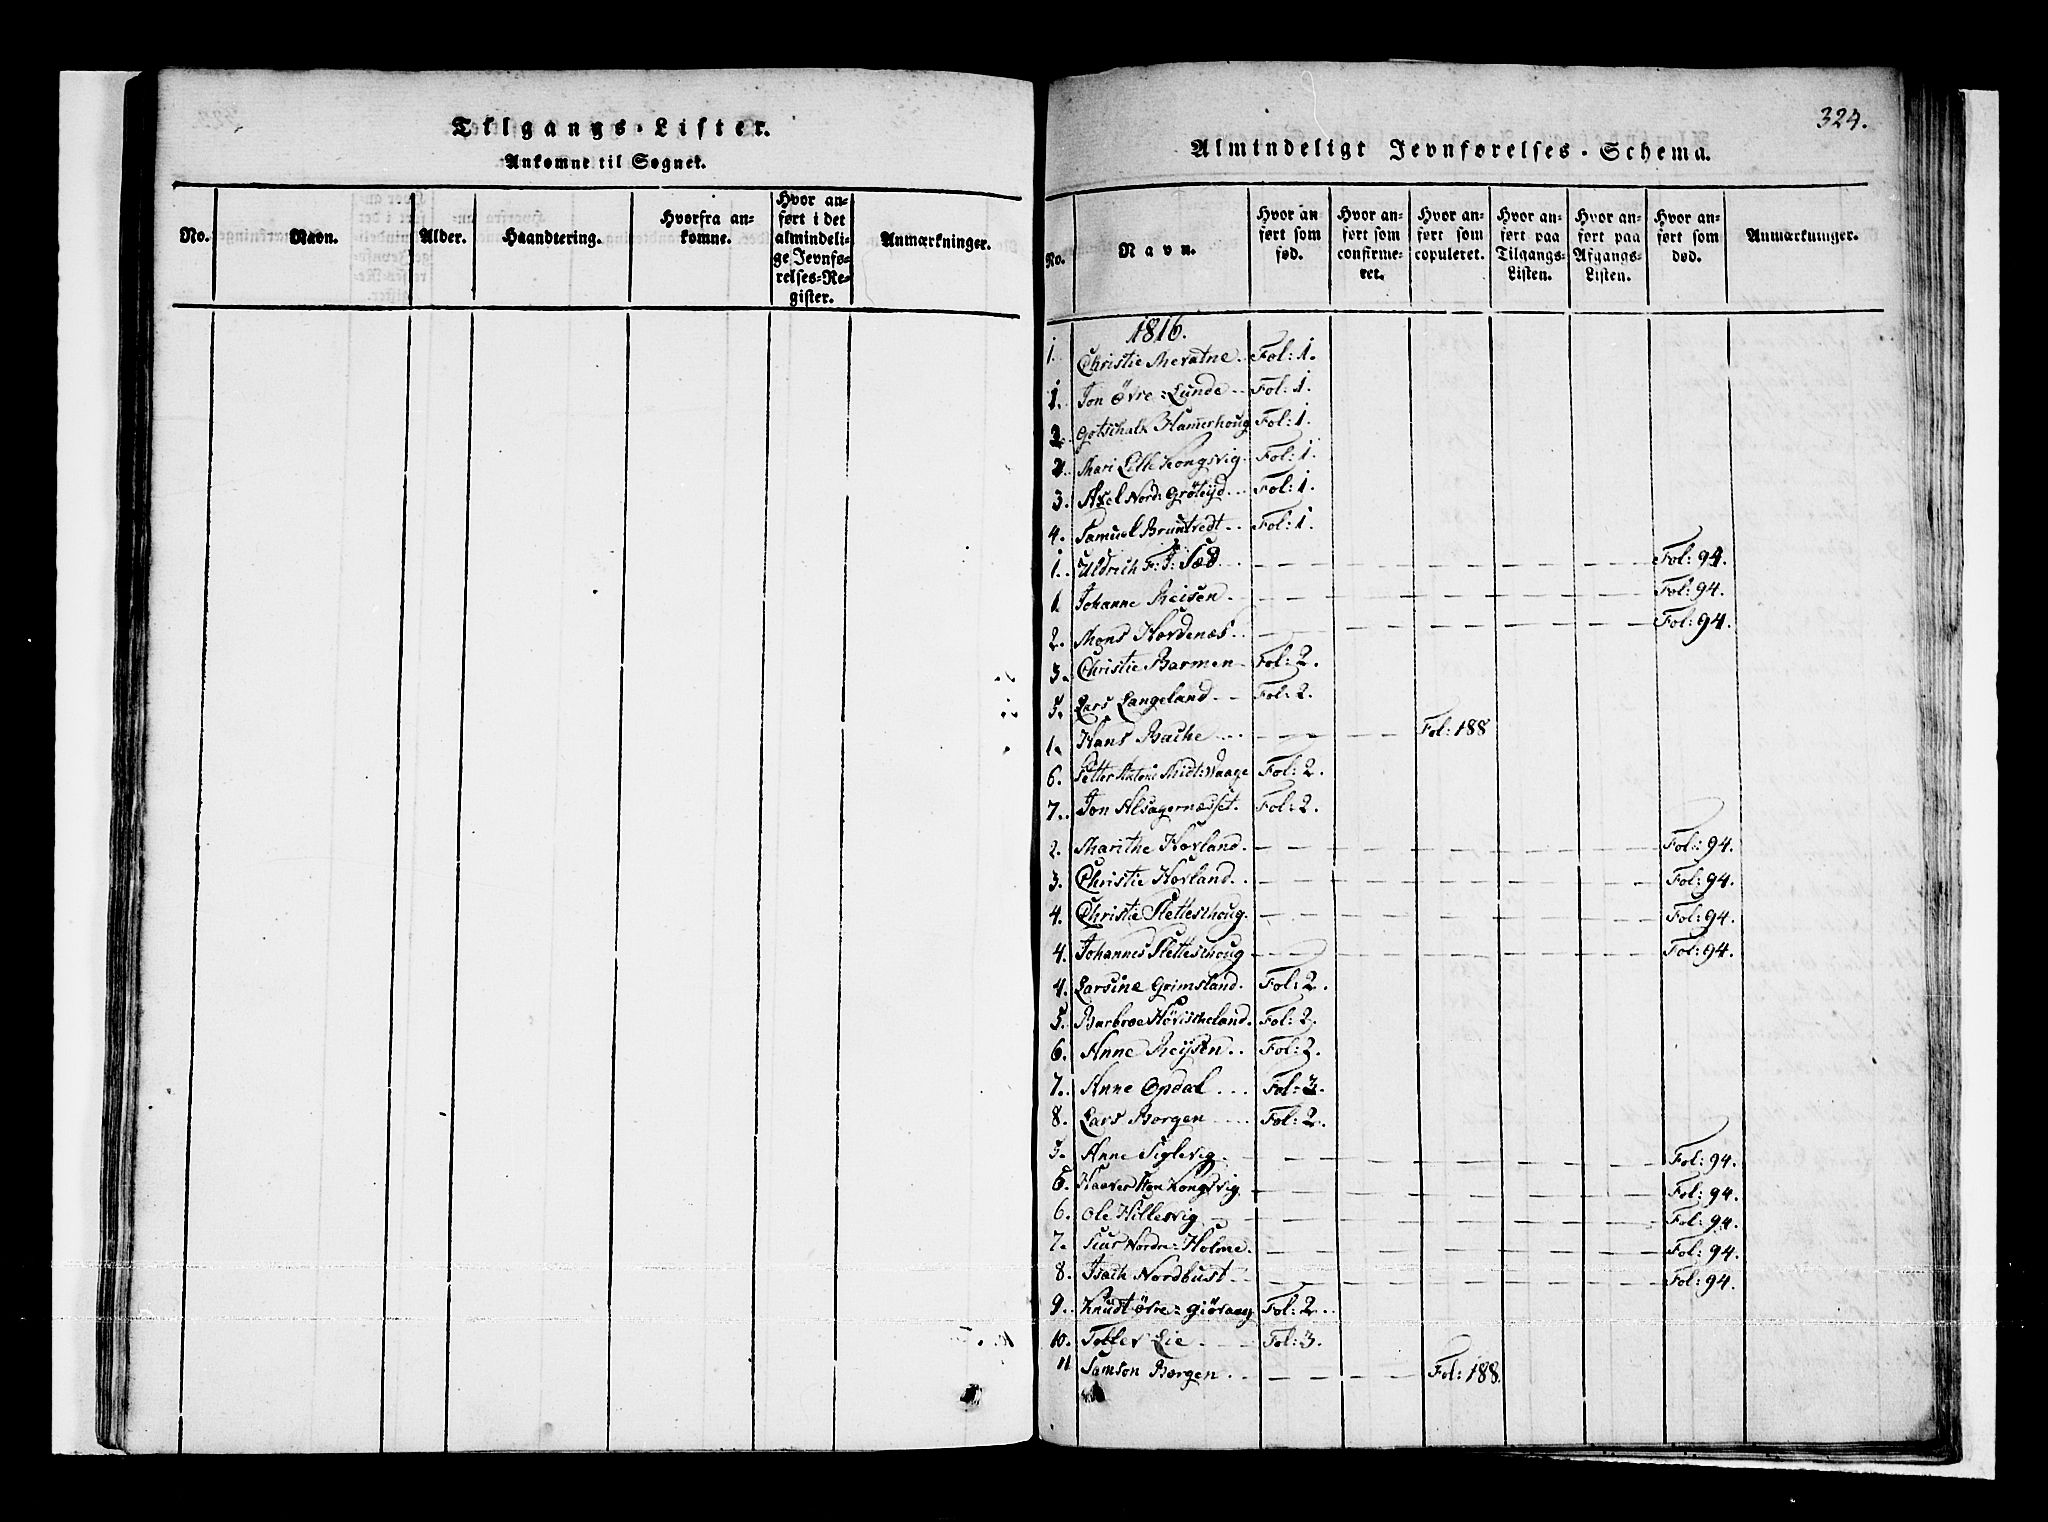 Tilgangs-Lister.
Ankomne til Sognet.
No.
Navn.
Alder.
Haandtering.
Hvorfra an-
komne.
Hvor an-
ført i det
almindeli-
ge Jevnfø-
relses-Re-
gister.
Anmærkninger.
324.
Almindeligt Jevnførelses-Schema.
No.
Navn.
Hvor an-
ført som
fød.
Hvor an-
ført som
confirme-
ret.
Hvor an-
ført som
copuleret.
Hvor an-
ført paa
Tilgangs-
Listen.
Hvor an-
ført paa
Afgangs-
Listen.
Hvor an-
ført som
død.
Anmærkninger.
1816.
1. Christie Mevatne. Fol: 1.
1. Jon Övre-Lunde Fol: 1.
2. Gotschalk Hamerhoug Fol: 1.
2. Mari Lille Kongsvig. Fol: 1.
3. Axel Nord: Fol: 1.
4. Samuel Bruntvedt Fol: 1.
1. Uldrich F: J: Sæd Fol: 94.
1 Johanne Reisen Fol: 94.
2. Mons Hordenæs Fol: 94.
3. Christie Barmen Fol: 2.
5. Lars Langeland Fol: 2.
1. Hans Bache Fol: 188
6. Petter Midt:Waage Fol: 2.
7. Jon Alsagernæsset. Fol: 2.
2. Marithe Hovland. Fol: 94.
3. Christie Hovland. Fol: 94.
4. Christie Slettesthoug. Fol: 94.
4. Johannes Slettesthoug Fol: 94.
4. Larsine Grimsland. Fol: 2.
5. Barbroe Fol: 2.
6. Anne Reisen Fol: 2.
7. Anne Opdal Fol: 3.
8. Lars Borgen Fol: 2.
5. Anne Siglevig Fol: 94.
6. Kongsvig Fol: 94.
6. Ole Hillesvig Fol: 94.
7. Siur Nordre-Holme. Fol: 94.
8. Isach Nordbust Fol: 94.
9. Knudt Övre- Fol: 2.
10. Tollev Lie Fol: 3.
11 Samson Borgen Fol: 188.